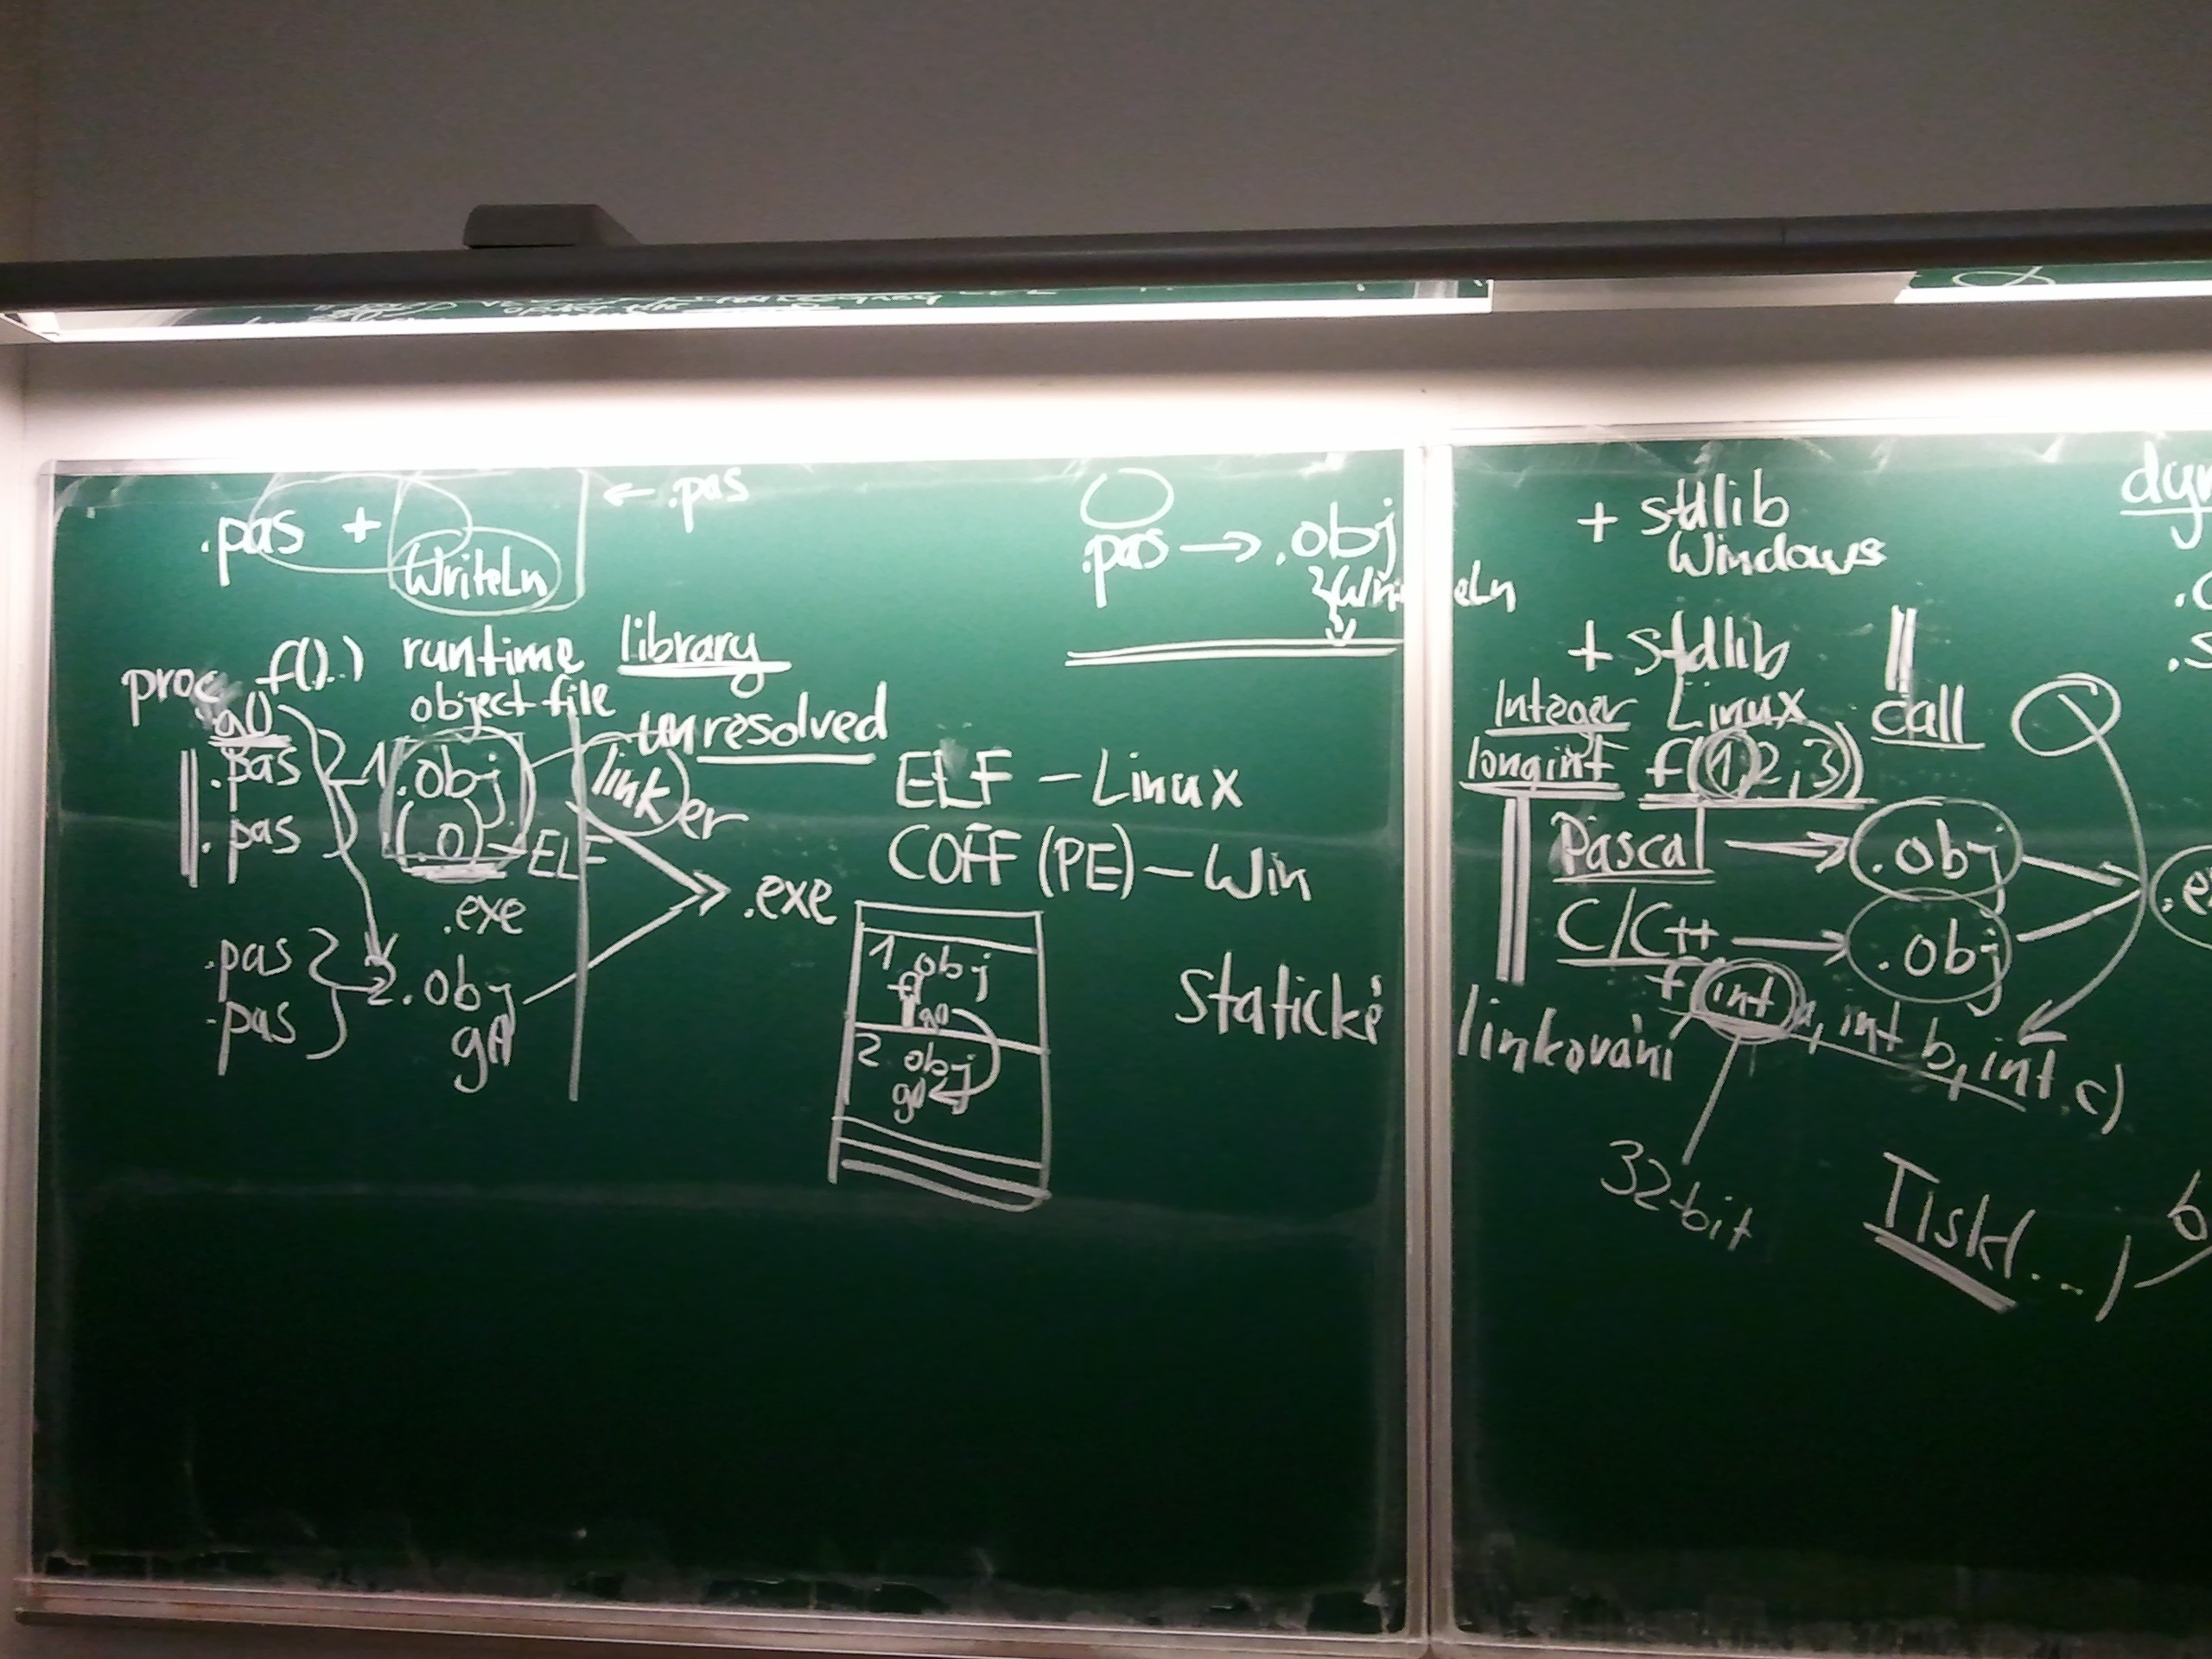 .pas + WriteLn ← .pas
runtime library
proc f(..)
g()
object file
unresolved
.pas
.pas
1 .obj
(.o) - ELF
linker
.exe
.pas
.pas
2 .obj
g()
.exe
ELF - Linux
COFF (PE) - Win
1 .obj
f()
g()
2 .obj
g()
.pas → .obj
WriteLn
statické linkování
+ stdlib
Windows
+ stdlib
Linux
Integer
longint
f(1,2,3)
call
Pascal → .obj
C/C++ → .obj
f(int a, int b, int c)
32-bit
Tisk(...)